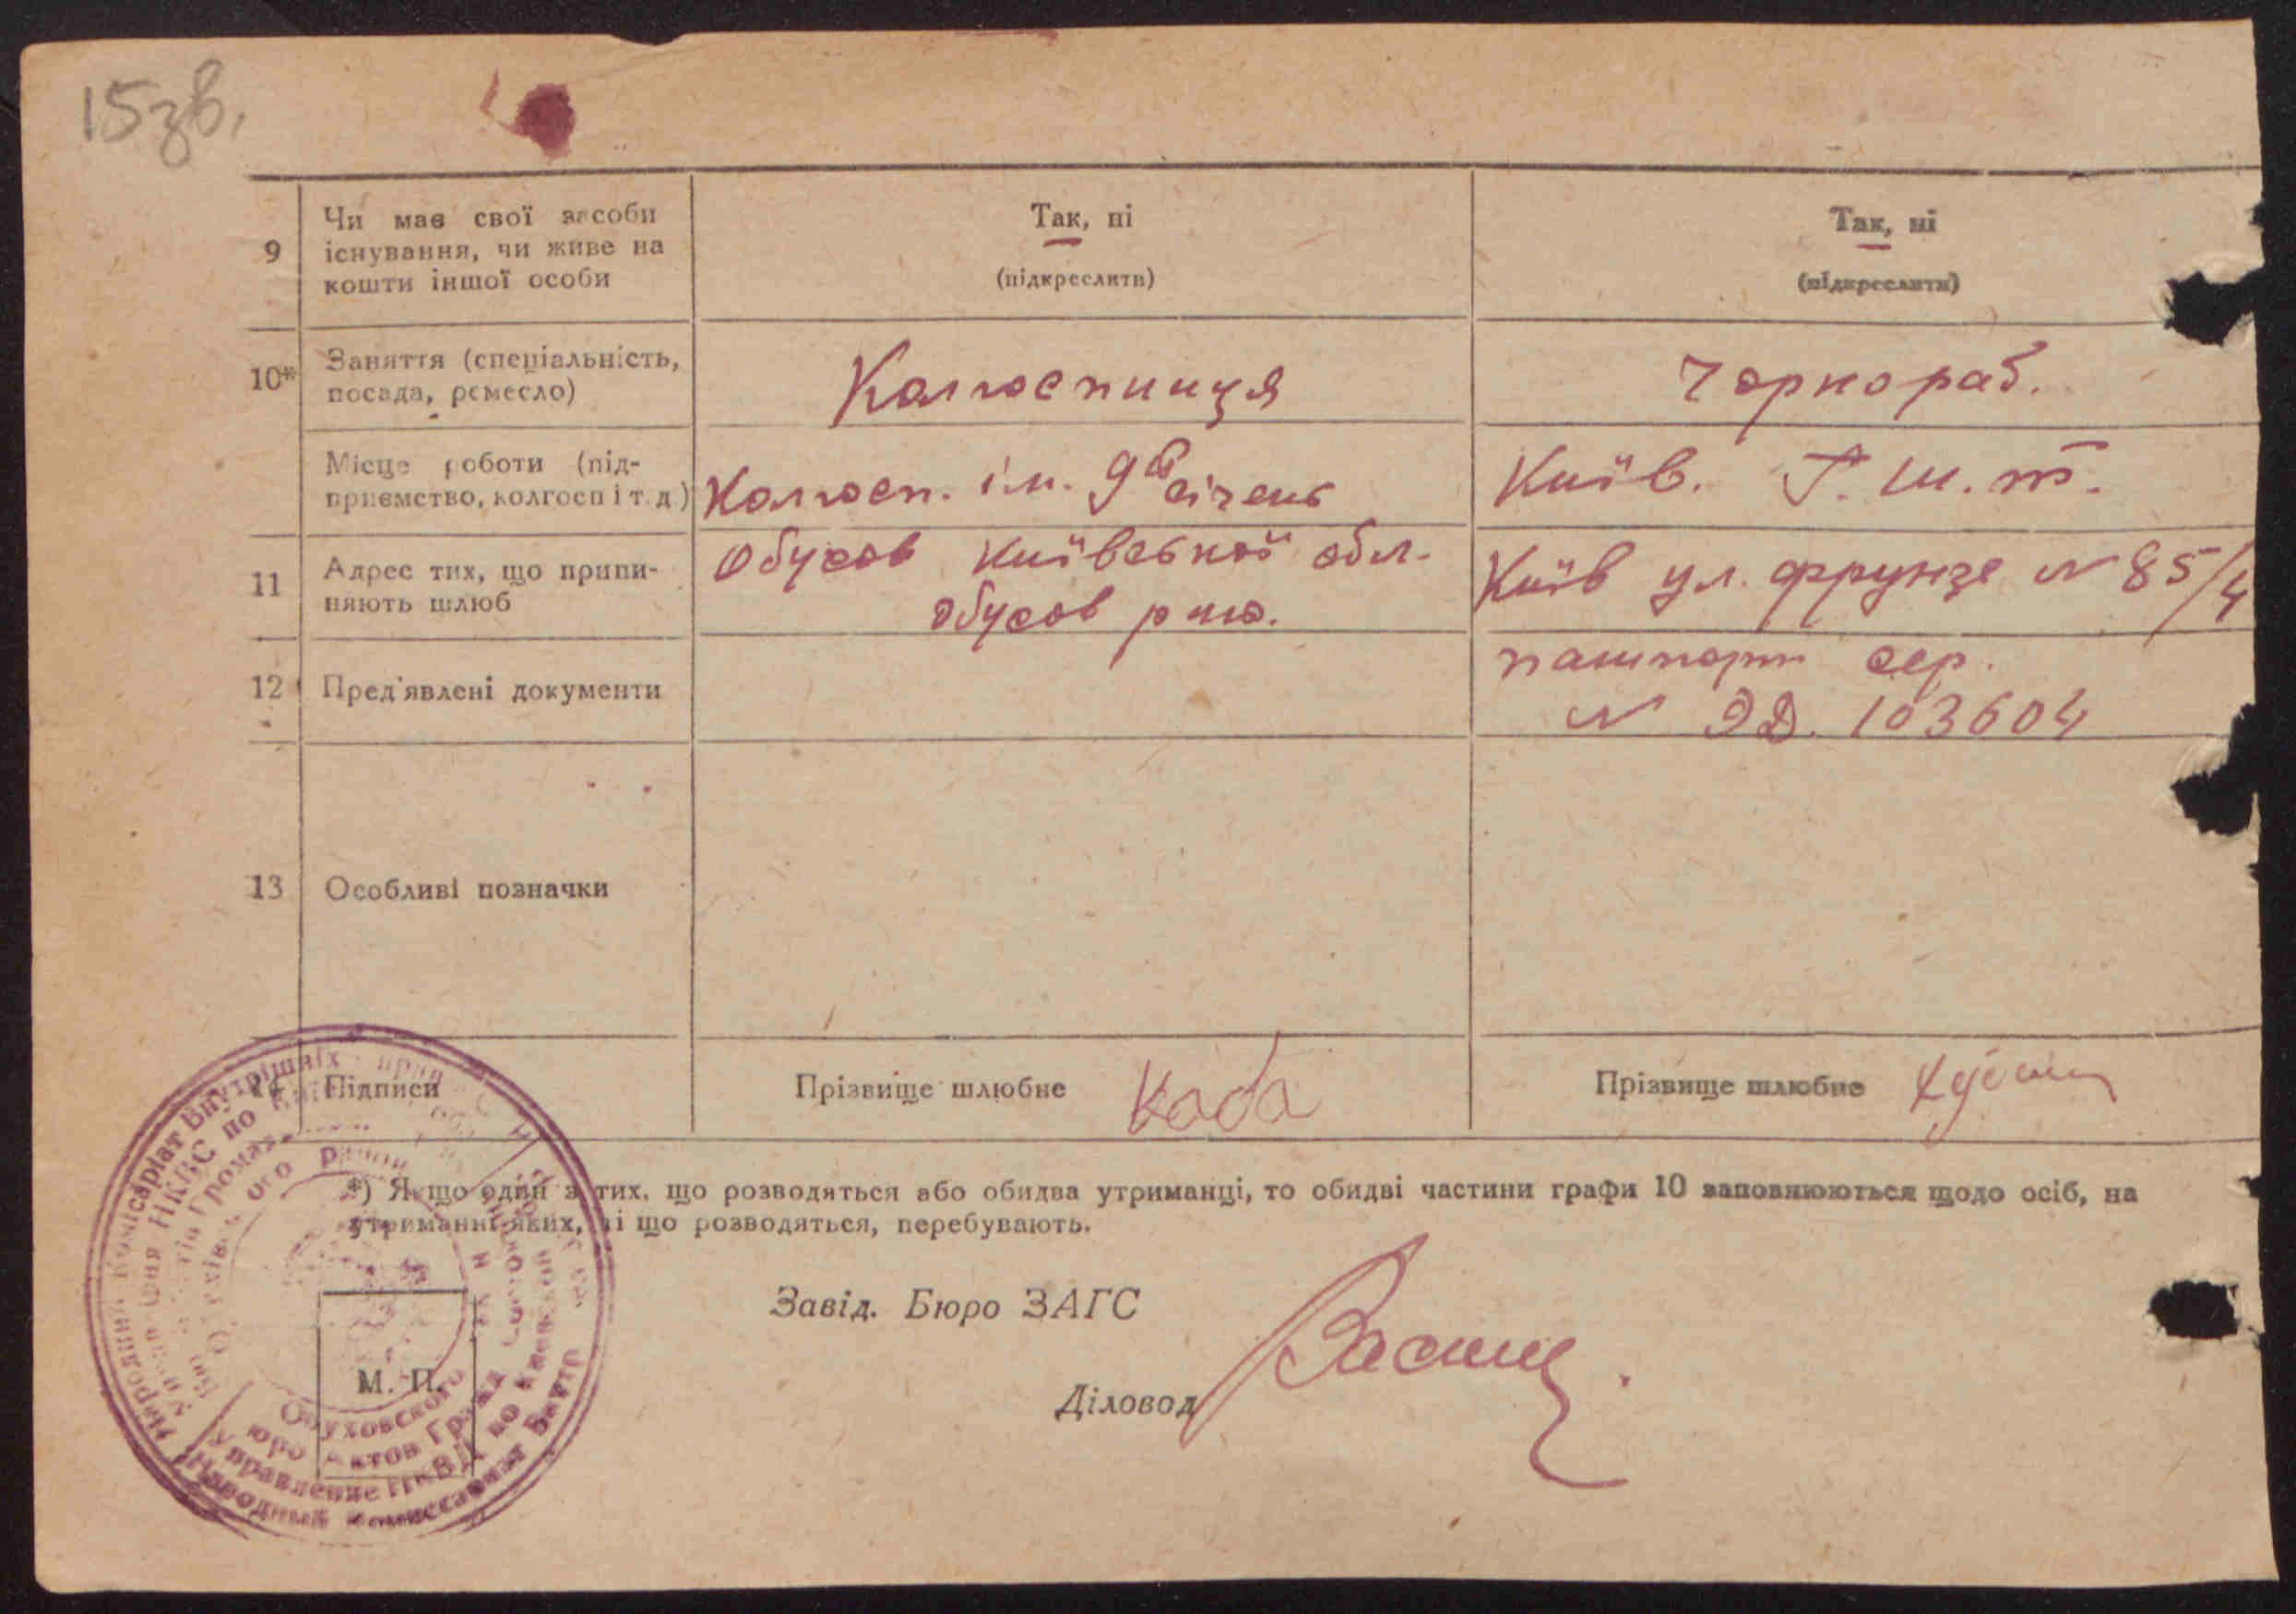 15зв.
9
Чи має свої засоби
існування, чи живе на
кошти іншої особи
Так, ні
(підкреслити)
Так, ні
(підкреслити)
10*
Заняття (спеціальність,
посада, ремесло)
Колгоспниця
Чорнораб.
Місце роботи (під-
приємство, колгосп і т. д.)
Колгосп. ім. 9 січень
Київ. Г. Ш. Т.
11
Адрес тих, що припи-
няють шлюб
Обухов Київської обл.
Обухов рню.
Київ ул. Фрунзе № 85/4
12
Пред'явлені документи
пашпорт сер.
№ ЭД. 103604
13
Особливі позначки
14
Підписи
Прізвище шлюбне Каба
Прізвище шлюбне
*) Якщо один з тих, що розводяться або обидва утриманці, то обидві частини графи 10 заповнюються щодо осіб, на
утриманні яких, ті що розводяться, перебувають.
Завід. Бюро ЗАГС
Діловод
М. П.
Народний Комісаріат Внутрішніх
НКВС по
Обуховского
Бюро Актов Гражд
Управление НКВД по Киевской
Народный Комиссариат Внутр